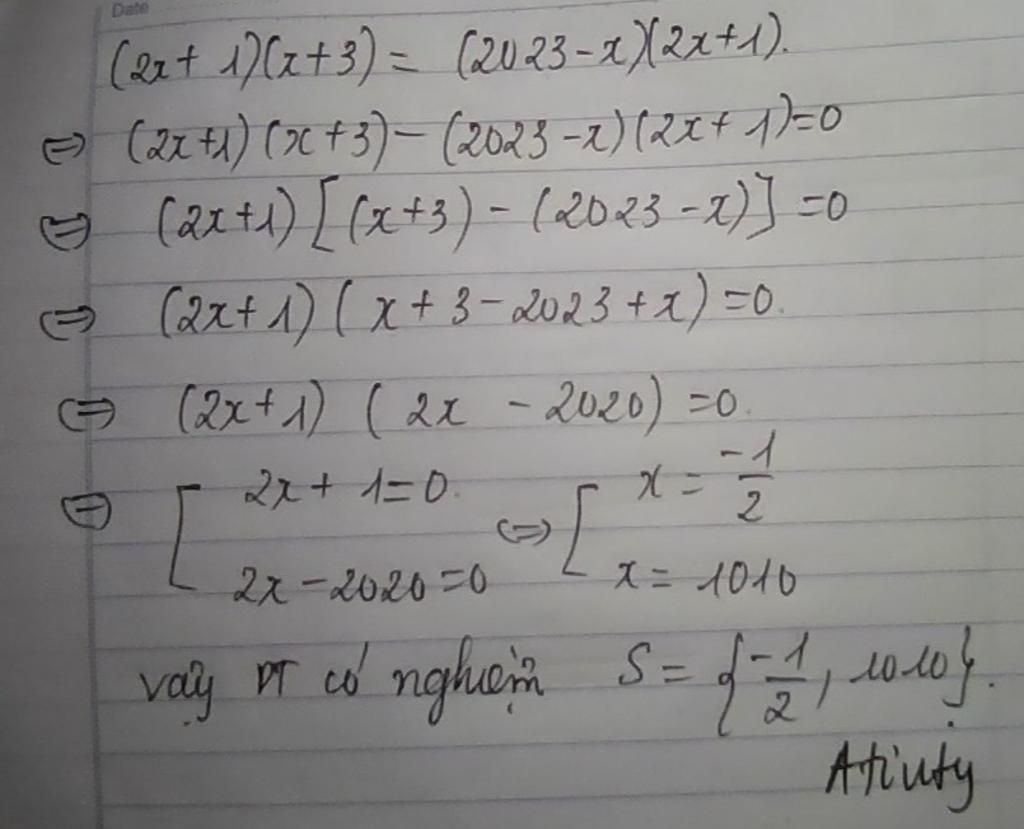 Date
(2x + 1)(x+3) = (2023-x)(2x+1).
⇔ (2x+1)(x+3) - (2023-x)(2x+1)=0
⇔ (2x+1)[(x+3) - (2023-x)] =0
⇔ (2x+1)(x+3-2023+x) =0.
⇔ (2x+1)(2x - 2020) =0.
⇔ [ 2x + 1=0. ⇔ [ x = -1/2
2x-2020=0 x = 1010
vậy PT có nghiệm S = {-1/2, 1010}.
Atiuty